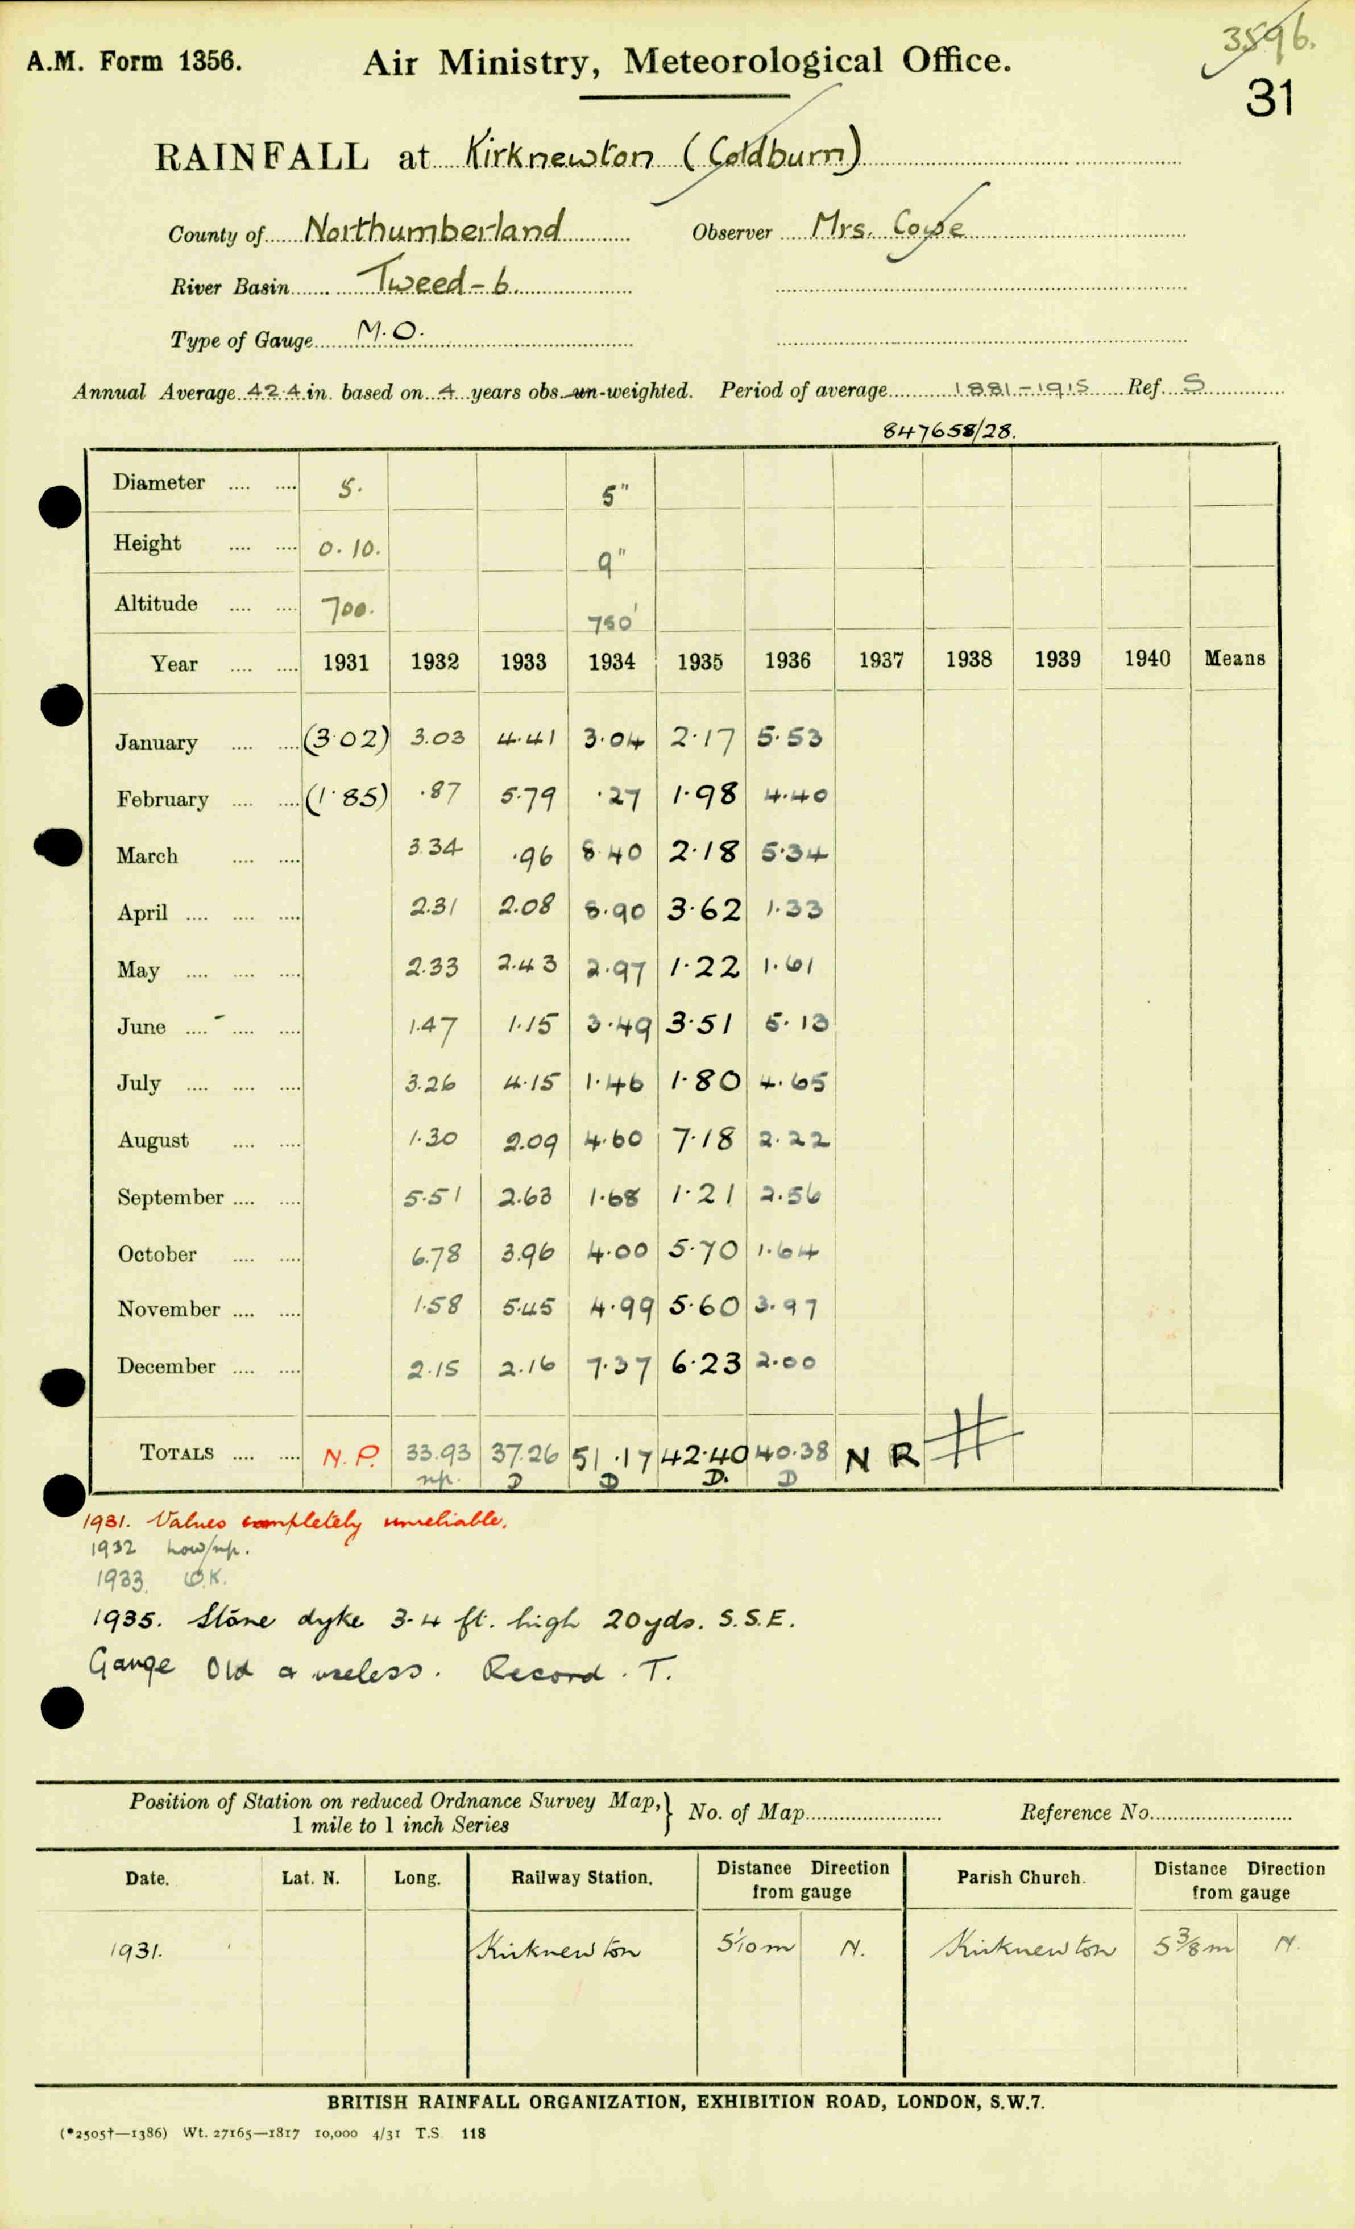 3596.
A.M. Form 1356. Air Ministry, Meteorological Office.
31
RAINFALL at Kirknewton (Coldburn)
County of Northumberland Observer Mrs. Cowe
River Basin Tweed-6.
Type of Gauge M.O.
Annual Average 42.4 in. based on 4 years obs. un-weighted. Period of average 1881-1915 Ref. S
847658/28.
Diameter .... .... 5. 5"
Height .... .... 0.10. 9"
Altitude .... .... 700. 750'
Year .... .... 1931 1932 1933 1934 1935 1936 1937 1938 1939 1940 Means
January .... .... (3.02) 3.03 4.41 3.04 2.17 5.53
February .... .... (1.85) .87 5.79 .27 1.98 4.40
March .... .... 3.34 .96 8.40 2.18 5.34
April .... .... .... 2.31 2.08 8.90 3.62 1.33
May .... .... .... 2.33 2.43 2.97 1.22 1.61
June .... .... .... 1.47 1.15 3.49 3.51 5.13
July .... .... .... 3.26 4.15 1.46 1.80 4.65
August .... .... 1.30 2.09 4.60 7.18 2.22
September .... .... 5.51 2.63 1.68 1.21 2.56
October .... .... 6.78 3.96 4.00 5.70 1.64
November .... .... 1.58 5.45 4.99 5.60 3.97
December .... .... 2.15 2.16 7.37 6.23 2.00
TOTALS .... .... N.P. 33.93 37.26 51.17 42.40 40.38 N R #
np. D D D. D
1931. Values completely unreliable.
1932 Low/np.
1933. O.K.
1935. Stone dyke 3-4 ft. high 20yds. S.S.E.
Gauge Old & useless. Record. T.
Position of Station on reduced Ordnance Survey Map, } No. of Map Reference No.
1 mile to 1 inch Series
Date. Lat. N. Long. Railway Station. Distance Direction from gauge Parish Church. Distance Direction from gauge
1931. Kirknewton 5 1/10 m N. Kirknewton 5 3/8 m N.
BRITISH RAINFALL ORGANIZATION, EXHIBITION ROAD, LONDON, S.W.7.
(*2505†—1386) Wt. 27165—1817 10,000 4/31 T.S. 118